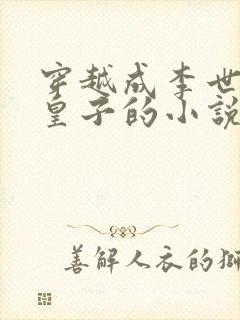 穿越成李世
皇子的小說
善解人衣的獅